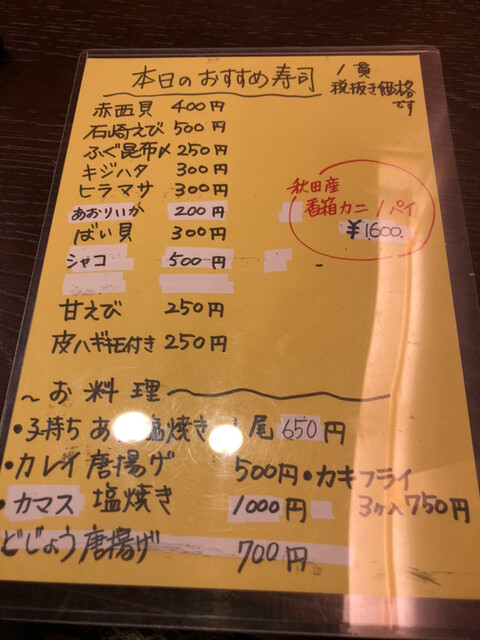 本日のおすすめ寿司
1貫
税抜き価格
です
赤西貝 400円
石崎えび 500円
ふぐ昆布〆 250円
キジハタ 300円
ヒラマサ 300円
あおりいか 200円
ばい貝 300円
シャコ 500円
甘えび 250円
皮ハギ肝付き 250円
秋田産
香箱カニ 1パイ
¥1,600.
〜お料理
・子持ち あ 塩焼き 尾 650円
・カレイ唐揚げ 500円
・カキフライ
3ヶ入 750円
・カマス 塩焼き 1000円
どじょう唐揚げ 700円